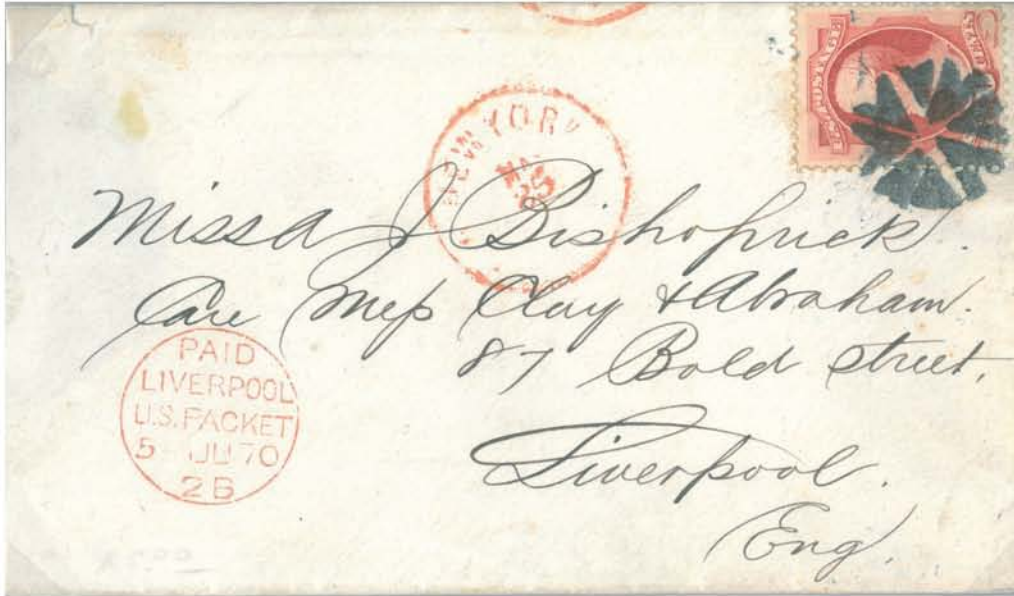 NEW YORK
MAY
25
Miss A J Bishoprick.
Care Mess Clay & Abraham.
87 Bold Street,
Liverpool.
Eng.
PAID
LIVERPOOL
U.S. PACKET
5 JU 70
2B
POSTAGE